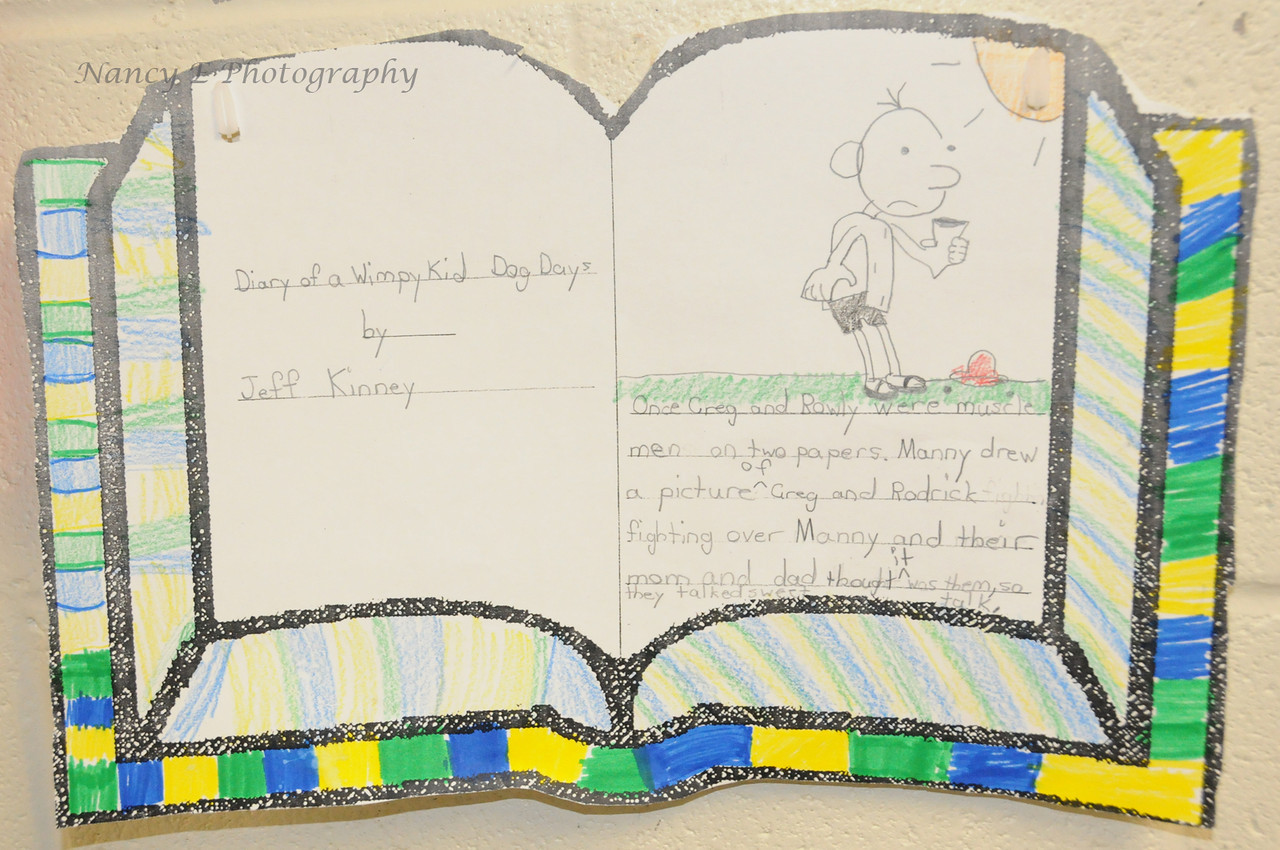 Nancy E Photography
Diary of a Wimpy Kid Dog Days
by
Jeff Kinney
Once Greg and Rowly were muscle
men on two papers. Manny drew
a picture ^of Greg and Rodrick
fighting over Manny and their
mom and dad thought ^it was them, so
they talked swest talk.